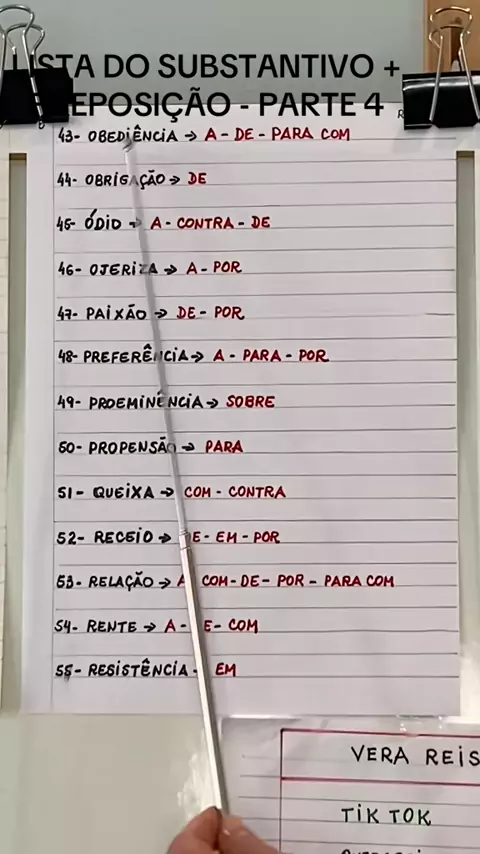 LISTA DO SUBSTANTIVO +
PREPOSIÇÃO - PARTE 4
43- OBEDIÊNCIA → A - DE - PARA COM
44- OBRIGAÇÃO → DE
45- ÓDIO → A - CONTRA - DE
46- OJERIZA → A - POR
47- PAIXÃO → DE - POR
48- PREFERÊNCIA → A - PARA - POR
49- PROEMINÊNCIA → SOBRE
50- PROPENSÃO → PARA
51- QUEIXA → COM - CONTRA
52- RECEIO → DE - EM - POR
53- RELAÇÃO → A COM - DE - POR - PARA COM
54- RENTE → A - DE - COM
55- RESISTÊNCIA - EM
VERA REIS
TIK TOK